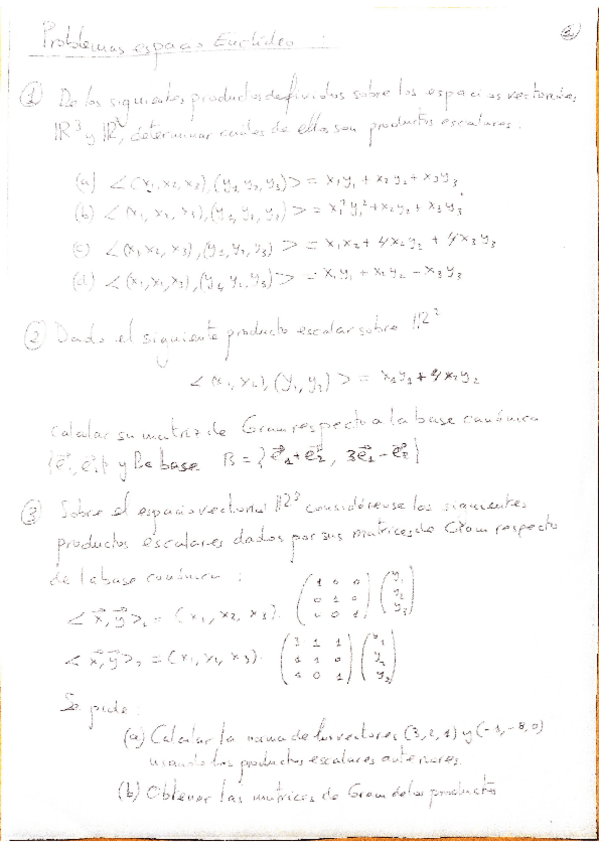 Problemas espacio Euclídeo :
2
① De los siguientes productos definidos sobre los espacios vectoriales
ℝ³ y ℝ², determinar cuáles de ellos son productos escalares.
(a) <(x₁,x₂,x₃),(y₁,y₂,y₃)> = x₁y₁ + x₂y₂ + x₃y₃
(b) <(x₁,x₂,x₃),(y₁,y₂,y₃)> = x₁²y₁² + x₂y₂ + x₃y₃
(c) <(x₁,x₂,x₃),(y₁,y₂,y₃)> = x₁x₂ + 4x₂y₂ + 4x₃y₃
(d) <(x₁,x₂,x₃),(y₁,y₂,y₃)> = x₁y₁ + x₂y₂ - x₃y₃
② Dado el siguiente producto escalar sobre ℝ²
<(x₁,x₂),(y₁,y₂)> = x₁y₁ + 4x₂y₂
calcular su matriz de Gram respecto a la base canónica
{e⃗₁, e⃗₂} y la base B = {e⃗₁+e⃗₂, 3e⃗₁-e⃗₂}
③ Sobre el espacio vectorial ℝ³ considérense los siguientes
productos escalares dados por sus matrices de Gram respecto
de la base canónica :
<x⃗,y⃗>₁ = (x₁,x₂,x₃). (1 0 0 / 0 1 0 / 0 0 1) (y₁ / y₂ / y₃)
<x⃗,y⃗>₂ = (x₁,x₂,x₃). (3 1 1 / 1 1 0 / 1 0 1) (y₁ / y₂ / y₃)
Se pide :
(a) Calcular la norma de los vectores (3,2,1) y
usando los productos escalares anteriores
(b) Obtener las matrices de Gram de los productos